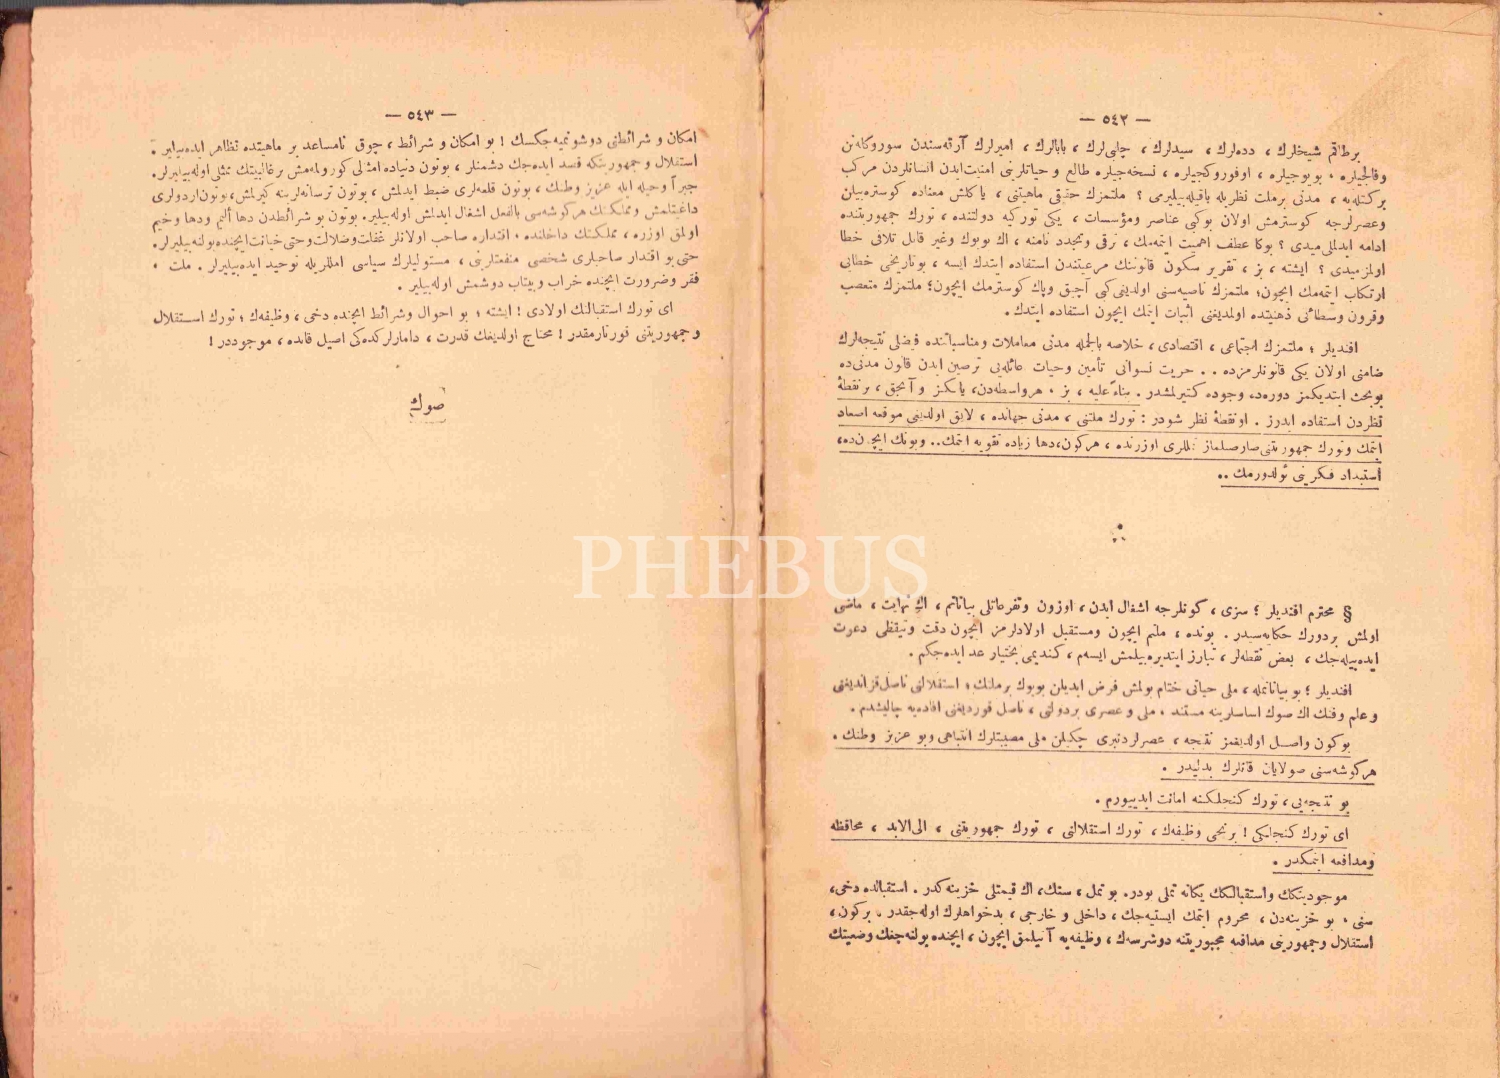 — ٥٤٢ —
برطاقم شیخلرك ، دده‌لرك ، سیدلرك ، چلبی‌لرك ، بابالرك ، امیرلرك آرقه‌سندن سوروکله‌نن
وفالجیلره ، بویوجیلره ، اوفوروکجیلره ، نسخه‌جیلره طالع و حیاتلرینی امنیت ایدن انسانلردن مرکب
برکتله‌یه ، مدنی برملت نظریله باقیله‌بیلیرمی ؟ ملتمزك حقیقی ماهیتنی ، یاکلش معناده کوستره‌بیلن
وعصرلرجه کوسترمش اولان بوکبی عناصر ومؤسسات ، یکی تورکیه دولتنده ، تورك جمهوریتنده
ادامه ایدلملی‌میدی ؟ بوکا عطف اهمیت ایتمه‌مك ، ترقی وتجدد نامنه ، اك بویوك وغیر قابل تلافی خطا
اولمازمیدی ؟ ایشته ، بز ، تقریر سکون قانوننك مرعیتندن استفاده ایتدك ایسه ، بوتاریخی خطایی
ارتکاب ایتمه‌مك ایچون؛ ملتمزك ناصیه‌سنی اولدیغی کبی آچیق وپاك کوسترمك ایچون؛ ملتمزك متعصب
وقرون وسطائی ذهنیتده اولمدیغنی اثبات ایتمك ایچون استفاده ایتدك .
افندیلر ؛ ملتمزك اجتماعی ، اقتصادی ، خلاصه بالجمله مدنی معاملات ومناسباتنده فیضلی نتیجه‌لرك
ضامنی اولان یکی قانونلرمزده . . حریت نسوانی تأمین وحیات عائله‌یی ترصین ایدن قانون مدنی‌ده
بوبحث ایتدیکمز دورده، وجوده کتیرلمشدر . بناءً علیه ، بز ، هرواسطه‌دن، یالکز و آنجق ، برنقطهٔ
نظردن استفاده ایدرز . اونقطهٔ نظر شودر : تورك ملتنی ، مدنی جهانده ، لایق اولدیغی موقعه اصعاد
ایتمك وتورك جمهوریتنی صارصیلماز تمللری اوزرنده ، هرکون، دها زیاده تقویه ایتمك.. وبونك ایچون‌ده،
استبداد فکرینی ئولدورمك ..
§ محترم افندیلر ؛ سزی ، کونلرجه اشغال ایدن ، اوزون وتفرعاتلی بیاناتم ، اك نهایت ، ماضی
اولمش بردورك حکایه‌سیدر . بونده ، ملتم ایچون ومستقبل اولادلرمز ایچون دقت وتیقظی دعوت
ایده‌بیله‌جك ، بعض نقطه‌لر ، تبارز ایتدیره‌بیلمش ایسه‌م ، کندیمی بختیار عد ایده‌جکم .
افندیلر ؛ بو بیاناتمله ، ملی حیاتی ختام بولمش فرض ایدیلن بویوك برملتك ؛ استقلالنی ناصل قزاندیغنی
و علم وفنك اك صوك اساسلرینه مستند ، ملی و عصری بردولتی ، ناصل قوردیغنی افاده‌یه چالیشدم .
بوکون واصل اولدیغمز نتیجه ، عصرلردنبری چکیلن ملی مصیبتلرك انتباهی وبو عزیز وطنك ،
هرکوشه‌سنی صولایان قانلرك بدلیدر .
بو نتیجه‌یی ، تورك کنجلکنه امانت ایدییورم .
ای تورك کنجلکی ! برنجی وظیفه‌ك ، تورك استقلالنی ، تورك جمهوریتنی ، الی‌الابد ، محافظه
ومدافعه ایتمکدر .
موجودیتکك واستقبالکك یکانه تملی بودر. بو تمل ، سنك، اك قیمتلی خزینه‌کدر . استقبالده دخی،
سنی ، بو خزینه‌دن ، محروم ایتمك ایستیه‌جك ، داخلی و خارجی ، بدخواهلرك اوله‌جقدر . برکون،
استقلال وجمهوریتی مدافعه مجبوریتنه دوشرسه‌ك ، وظیفه‌یه آتیلمق ایچون ، ایچنده بولنه‌جغك وضعیتك
— ٥٤٣ —
امکان و شرائطنی دوشونمیه‌جکسك ! بو امکان و شرائط ، چوق نامساعد بر ماهیتده تظاهر ایده‌بیلیر .
استقلال و جمهوریتکه قصد ایده‌جك دشمنلر ، بوتون دنیاده امثالی کورولمه‌مش برغالبیتك ممثلی اوله‌بیلیرلر.
جبراً وحیله ایله عزیز وطنك ، بوتون قلعه‌لری ضبط ایدلمش ، بوتون ترسانه‌لرینه کیرلمش، بوتون‌اردولری
داغیتلمش ومملکتك هرکوشه‌سی بالفعل اشغال ایدلمش اوله‌بیلیر. بوتون بو شرائطدن دها ألیم ودها وخیم
اولمق اوزره ، مملکتك داخلنده ، اقتداره صاحب اولانلر غفلت وضلالت وحتی خیانت ایچنده بولنه‌بیلیرلر.
حتی بو اقتدار صاحبلری شخصی منفعتلرینی ، مستولیلرك سیاسی املرلریله توحید ایده‌بیلیرلر . ملت ،
فقر وضرورت ایچنده خراب وبیتاب دوشمش اوله‌بیلیر .
ای تورك استقبالنك اولادی ! ایشته ؛ بو احوال وشرائط ایچنده دخی ، وظیفه‌ك ؛ تورك استقلال
و جمهوریتنی قورتارمقدر ! محتاج اولدیغك قدرت ، دامارلرکده‌کی اصیل قانده ، موجوددر !
صوك
PHEBUS